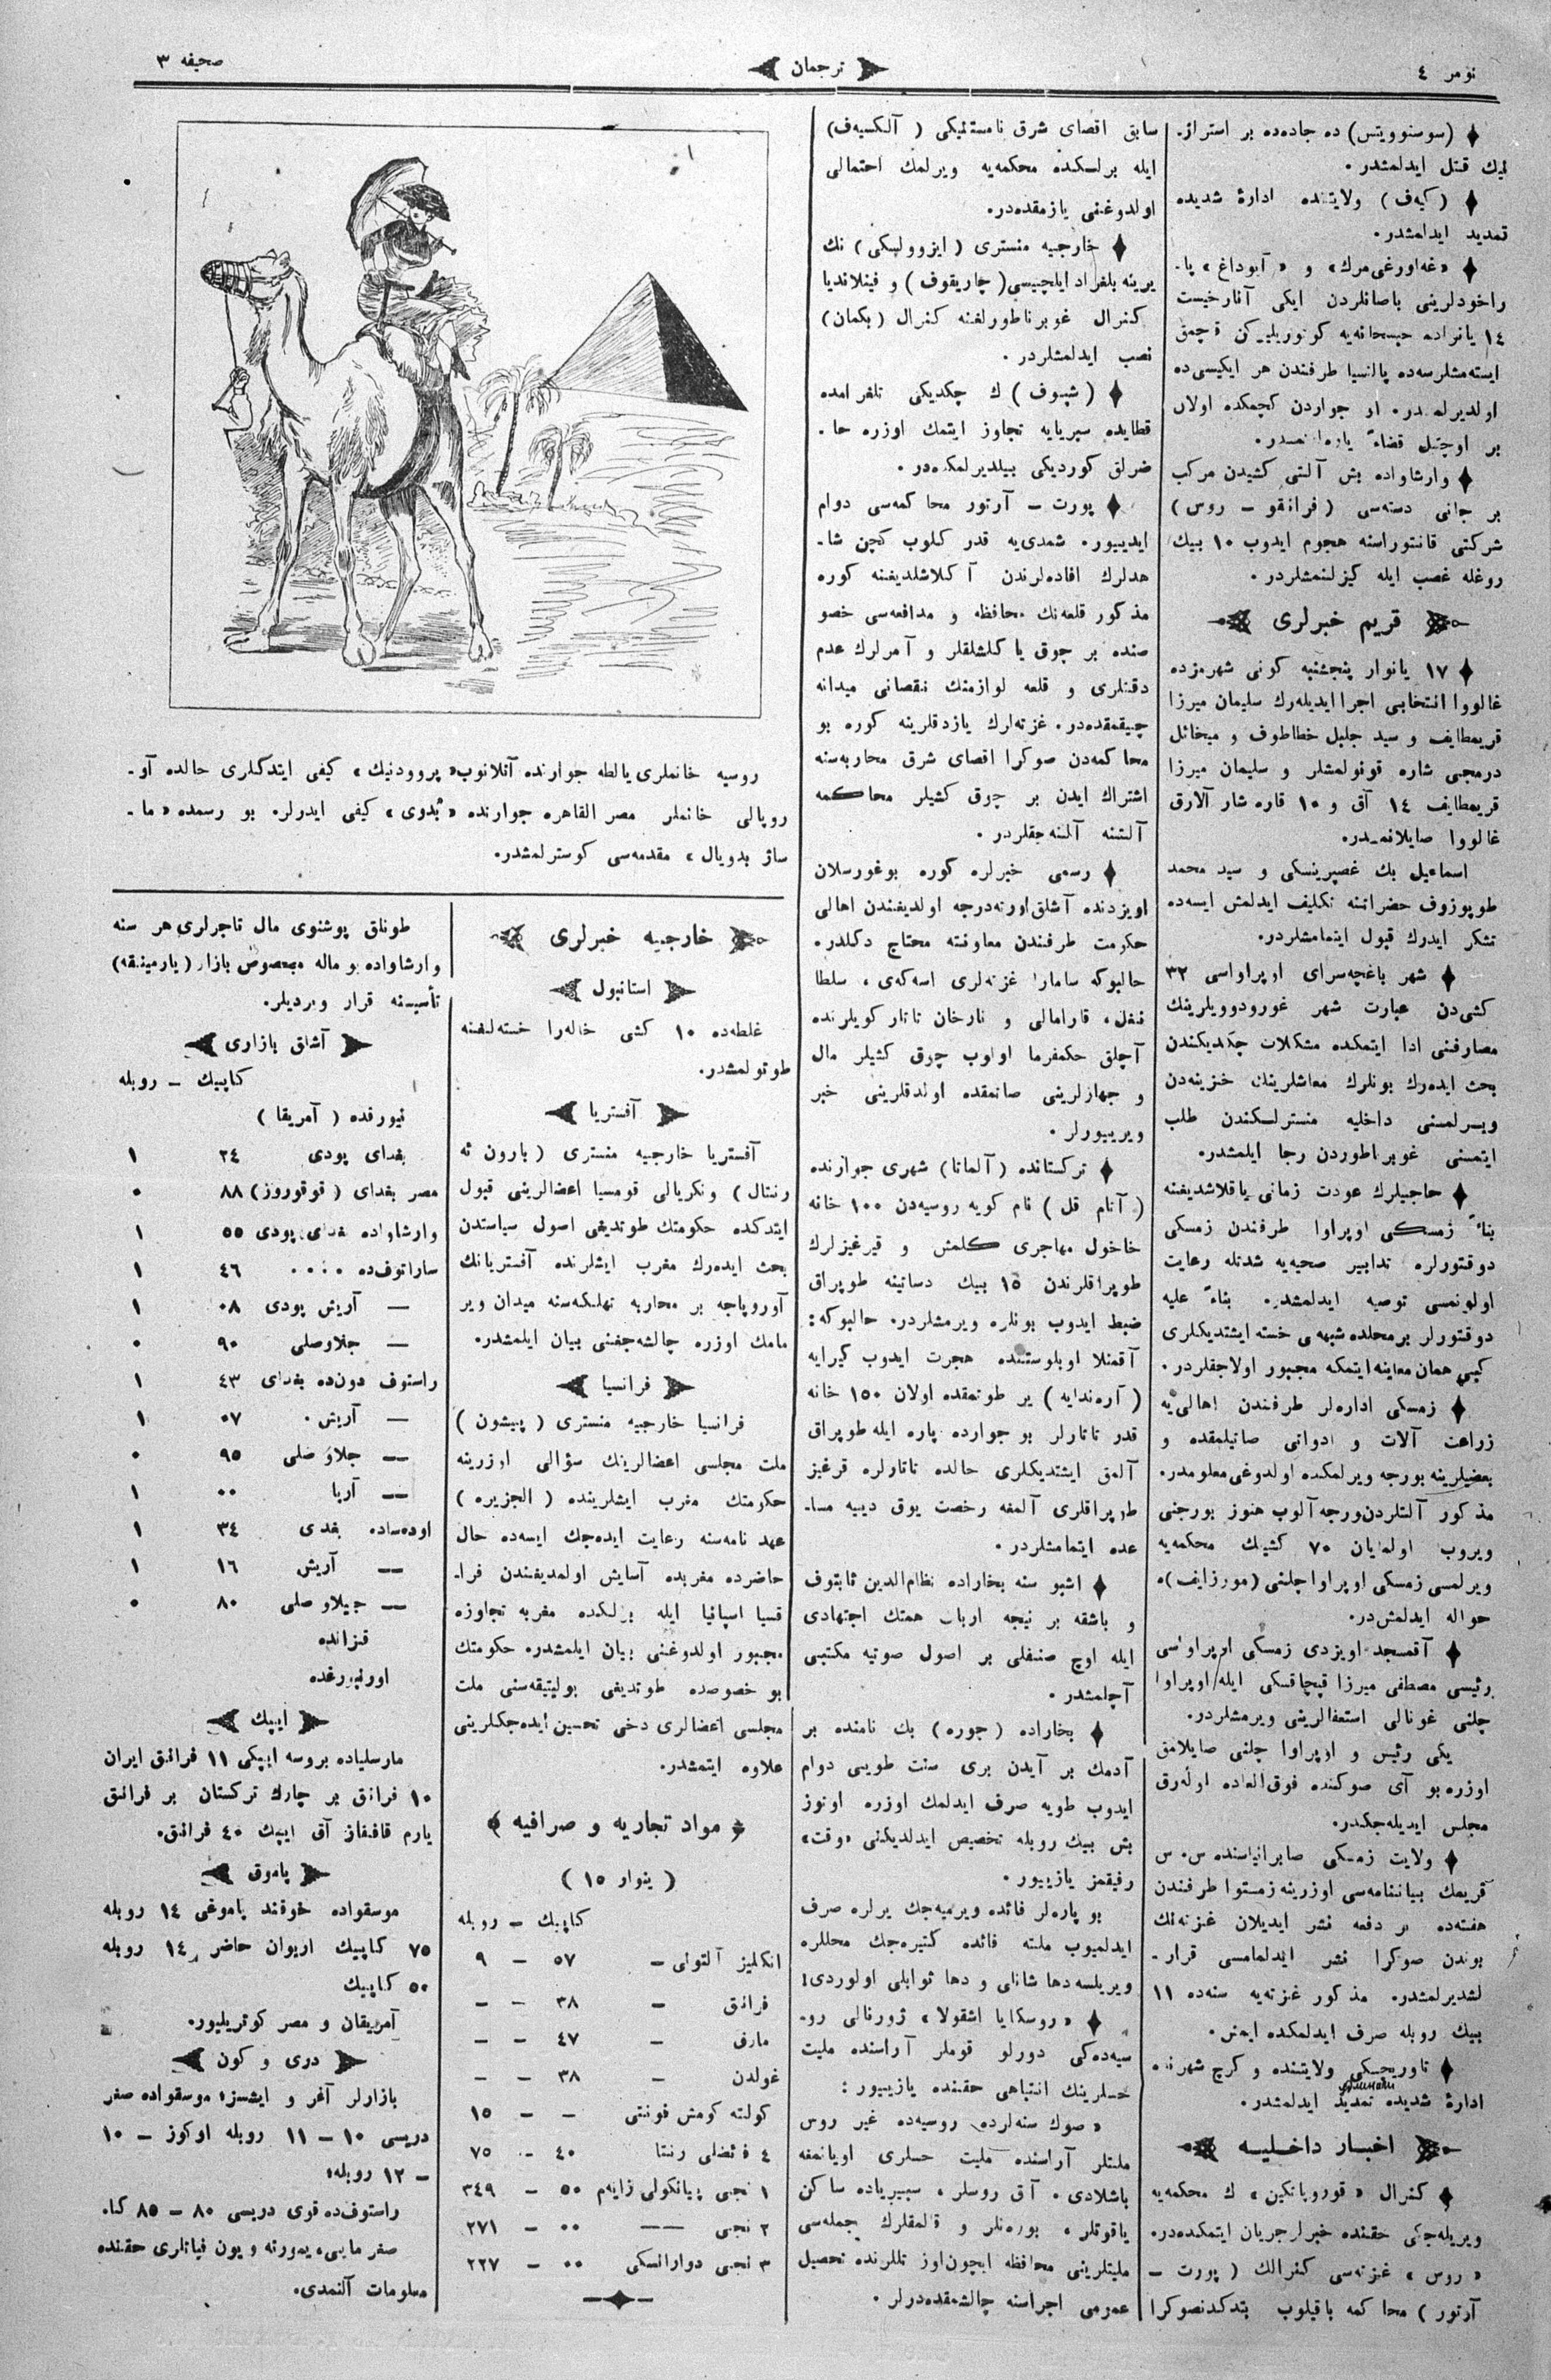 نومر ٤
ترجمان
صحيفه ٣
(سوسنوويتس) ده جاده‌ده بر استراژ-
نيك قتل ايدلمشدر.
(كيه‌ف) ولايتنده ادارۀ شديده
تمديد ايدلمشدر.
«غه‌اورغى‌مرك» و «آيوداغ» پا-
راخودلرينى باصانلردن ايكى آنارخيست
١٤ يانوارده حبسخانه‌يه كوتوريليركن قچمق
ايسته‌مشلرسه‌ده پالتسيا طرفندن هر ايكيسى‌ده
اولديرلمشدر. او جواردن كچمكده اولان
بر اوچتل قضاءً يارالنمشدر.
وارشاواده بش آلتى كشيدن مركب
بر جانى دسته‌سى (فرانقو - روس)
شركتى قانتوراسنه هجوم ايدوب ١٠ بيك
روبله غصب ايله كيزلنمشلردر.
قريم خبرلرى
١٧ يانوار پنجشنبه كونى شهرمزده
غالووا انتخابى اجرا ايديله‌رك سليمان ميرزا
قريمطايف و سيد جليل خطاطوف و ميخائل
درمجى شاره قونولمشلر و سليمان ميرزا
قريمطايف ١٤ آق و ١٠ قاره شار آلارق
غالووا صايلانمشدر.
اسماعيل بك غصپرينسكى و سيد محمد
طوپوزوف حضراتنه تكليف ايدلمش ايسه‌ده
تشكر ايدرك قبول ايتمامشلردر.
شهر باغچه‌سراى اوپراواسى ٣٢
كشى‌دن عبارت شهر غورودوويلرينك
مصارفنى ادا ايتمكده مشكلات چكديكندن
بحث ايده‌رك بونلرك معاشلرينك خزينه‌دن
ويرلمسنى داخليه منسترلسكندن طلب
ايتمسنى غوبرناطوردن رجا ايلمشدر.
حاجيلرك عودت زمانى ياقلاشديغنه
بناءً زمسكى اوپراوا طرفندن زمسكى
دوقتورلره تدابير صحيه‌يه شدتله رعايت
اولونمسى توصيه ايدلمشدر. بناءً عليه
دوقتورلر بر محلده شبهه‌لى خسته ايشتديكلرى
كبى همان معاينه ايتمكه مجبور اولاجقلردر.
زمسكى اداره‌لر طرفندن اهالى‌يه
زراعت آلات و ادواتى صاتيلمقده و
بعضيلرينه بورجه ويرلمكده اولدوغى معلومدر.
مذكور آلتلردن بورجه آلوب هنوز بورجنى
ويروب اولمايان ٧٠ كشينك محكمه‌يه
ويرلمسى زمسكى اوپراوا چلنى (مورزايف)ه
حواله ايدلمش‌در.
آقمسجد اويزدى زمسكى اوپراواسى
رئيسى مصطفى ميرزا قپچاقسكى ايله اوپراوا
چلنى غونالى استعفالرينى ويرمشلردر.
يكى رئيس و اوپراوا چلنى صايلامق
اوزره بو آى صوكنده فوق‌العاده اوله‌رق
مجلس ايديله‌جكدر.
ولايت زمسكى صابرانياسنده س. س
قريمك بياننامه‌سى اوزرينه زمستوا طرفندن
هفته‌ده بر دفعه نشر ايديلان غزته‌نك
بوندن صوكرا نشر ايدلمامسى قرار-
لشديرلمشدر. مذكور غزته‌يه سنه‌ده ١١
بيك روبله صرف ايدلمكده ايمش.
تاوريچسكى ولايتنده و كرچ شهرنده
ادارۀ شديده تمديد ايدلمشدر.
اخبار داخليه
كنرال «قوروپاتكين»ك محكمه‌يه
ويريله‌جكى حقنده خبرلر جريان ايتمكده‌در.
«روس» غزته‌سى كنرالك (پورت -
آرتور) محاكمه باقيلوب بتدكدنصوكرا
سابق اقصاى شرق نامستنيكى (آلكسيه‌ف)
ايله برلسكده محكمه‌يه ويرلمك احتمالى
اولدوغنى يازمقده‌در.
خارجيه منسترى (ايزوولسكى)نك
يرينه بلغراد ايلچيسى (چاريقوف) و فينلانديا
كنرال غوبرناطورلغنه كنرال (بكمان)
نصب ايدلمشلردر.
(شپوف)ك چكديكى تلغرامده
قطايده سبريايه تجاوز ايتمك اوزره حا-
ضرلق كورديكى بيلديرلمكده‌در.
پورت - آرتور محاكمه‌سى دوام
ايدييور. شمدى‌يه قدر كلوب كچن شا-
هدلرك افاده‌لرندن آكلاشلديغنه كوره
مذكور قلعه‌نك محافظه و مدافعه‌سى خصو
صنده بر چوق ياكلشلقلر و آمرلرك عدم
دقتلرى و قلعه لوازمنك نقصانى ميدانه
چيقمقده‌در. غزته‌لرك يازدقلرينه كوره بو
محاكمه‌دن صوكرا اقصاى شرق محاربه‌سنه
اشتراك ايدن بر چوق كشيلر محاكمه
آلتنه آلنه‌جقلردر.
رسمى خبرلره كوره بوغورسلان
اويزدنده آشلق اورته‌درجه اولديغندن اهالى
حكومت طرفندن معاونته محتاج دكلدر.
حالبوكه سامارا غزته‌لرى اسه‌كه‌ى، سلطا
نغل، قارامالى و نارخان تاتار كويلرنده
آچلق حكمفرما اولوب چوق كشيلر مال
و جهازلرينى صاتمقده اولدقلرينى خبر
ويرييورلر.
تركستانده (آلماتا) شهرى جوارنده
(آتام قل) نام كويه روسيه‌دن ١٠٠ خانه
خاخول مهاجرى كلمش و قيرغيزلرك
طوپراقلرندن ١٥ بيك دساتينه طوپراق
ضبط ايدوب بونلره ويرمشلردر. حالبوكه:
آقمنلا اوبلوستنده هجرت ايدوب كيرايه
(آره‌ندايه) ير طوتمقده اولان ١٥٠ خانه
قدر تاتارلر بو جوارده پاره ايله طوپراق
آلمق ايشتديكلرى حالده تاتارلره قرغيز
طوپراقلرى آلمغه رخصت يوق دييه مسا-
عده ايتمامشلردر.
اشبو سنه بخاراده نظام‌الدين ثابتوف
و باشقه بر نيجه ارباب همتك اجتهادى
ايله اوچ صنفلى بر اصول صوتيه مكتبى
آچلمشدر.
بخاراده (جوره) بك نامنده بر
آدمك بر آيدن برى سنت طويى دوام
ايدوب طويه صرف ايدلمك اوزره اوتوز
بش بيك روبله تخصيص ايدلديكنى «وقت»
رفيقمز يازييور.
بو پاره‌لر فائده ويرميه‌جك يرلره صرف
ايدلميوب ملته فائده كتيره‌جك محللره
ويريلسه دها شانلى و دها ثوابلى اولوردى!
«روسكايا اشقولا» ژورنالى رو-
سيه‌ده‌كى دورلو قوملر آراسنده مليت
حسلرينك انتباهى حقنده يازييور:
«صوك سنه‌لرده روسيه‌ده غير روس
ملتلر آراسنده مليت حسلرى اويانمغه
باشلادى. آق روسلر، سبيرياده ساكن
ياقوتلر، بوره‌تلر و قالمقلرك جمله‌سى
مليتلرينى محافظه ايچون اوز تللرنده تحصيل
عمومى اجراسنه چالشمقده‌درلر.
روسيه خانملرى يالطه جوارنده آتلانوب «پروودنيك» كيفى ايتدكلرى حالده آو-
روپالى خانملر مصر القاهره جوارنده «بدوى» كيفى ايدرلر. بو رسمده «ما-
ساژ بدويال» مقدمه‌سى كوسترلمشدر.
خارجيه خبرلرى
استانبول
غلطه‌ده ١٠ كشى خاله‌را خسته‌لغنه
طوتولمشدر.
آفستريا
آفستريا خارجيه منسترى (بارون ئه
رنتال) ونكريالى قومسيا اعضالرينى قبول
ايتدكده حكومتك طوتديغى اصول سياستدن
بحث ايده‌رك مغرب ايشلرنده آفستريانك
آوروپاجه بر محاربه تهلكه‌سنه ميدان وير
مامك اوزره چالشه‌جغنى بيان ايلمشدر.
فرانسيا
فرانسيا خارجيه منسترى (پيشون)
ملت مجلسى اعضالرينك سؤالى اوزرينه
حكومتك مغرب ايشلرينده (الجزيره)
عهد نامه‌سنه رعايت ايده‌جك ايسه‌ده حال
حاضرده مغربده آسايش اولمديغندن فرا-
نسيا اسپانيا ايله برلكده مغربه تجاوزه
مجبور اولدوغنى بيان ايلمشدر. حكومتك
بو خصوصده طوتديغى بوليتيقه‌سنى ملت
مجلسى اعضالرى دخى تحسين ايده‌جكلرينى
علاوه ايتمشدر.
مواد تجاريه و صرافيه
(ينوار ١٥)
كاپيك - روبله
انكليز آلتونى - ٥٧ - ٩
فرانق - ٣٨ - -
مارق - ٤٧ - -
غولدن - ٣٨ - -
كولته كومش فونتى - - ١٥
٤ فائضلى رنتا ٤٠ - ٧٥
١ نجى پيانكولى زايه‌م ٥٠ - ٣٤٩
٢ نجى -- ٠٠ - ٢٧١
٣ نجى دوارانسكى ٠٠ - ٢٢٧
طوناق پوشنوى مال تاجرلرى هر سنه
وارشاواده بو ماله مخصوص بازار (يارمينقه)
تأسيسنه قرار ويرديلر.
آشلق بازارى
كاپيك - روبله
نيورقده (آمريقا)
بغداى پودى ٢٤ ١
مصر بغداى (قوقوروز) ٨٨ ٠
وارشاواده بغداى پودى ٥٥ ١
ساراتوف‌ده .... ٤٦ ١
— آريش پودى ٠٨ ١
— جلاوصلى ٩٠ ٠
راستوف دون‌ده بغداى ٤٣ ١
— آريش . ٠٧ ١
— جلاو صلى ٩٥ ٠
— آرپا ٠٠ ١
اوده‌ساده بغدى ٣٤ ١
— آريش ١٦ ١
— جيلاو صلى ٨٠ ٠
قزانده
اورنبورغده
ايپك
مارسلياده بروسه ايپكى ١١ فرانق ايران
١٠ فرانق بر چارك تركستان بر فرانق
يارم قافقاز آق ايپك ٤٠ فرانق.
پاموق
موسقواده خوقند پاموغى ١٤ روبله
٧٥ كاپيك اريوان حاضر ١٤ روبله
٥٠ كاپيك
آمريقان و مصر كوتريليور.
درى و كون
بازارلر آغر و ايشسز؛ موسقواده صغر
دريسى ١٠ - ١١ روبله اوكوز - ١٠
- ١٢ روبله؛
راستوف‌ده قوى دريسى ٨٠ - ٨٥ كا.
صغر مايى، يمورته و يون فياتلرى حقنده
معلومات آلنمدى.